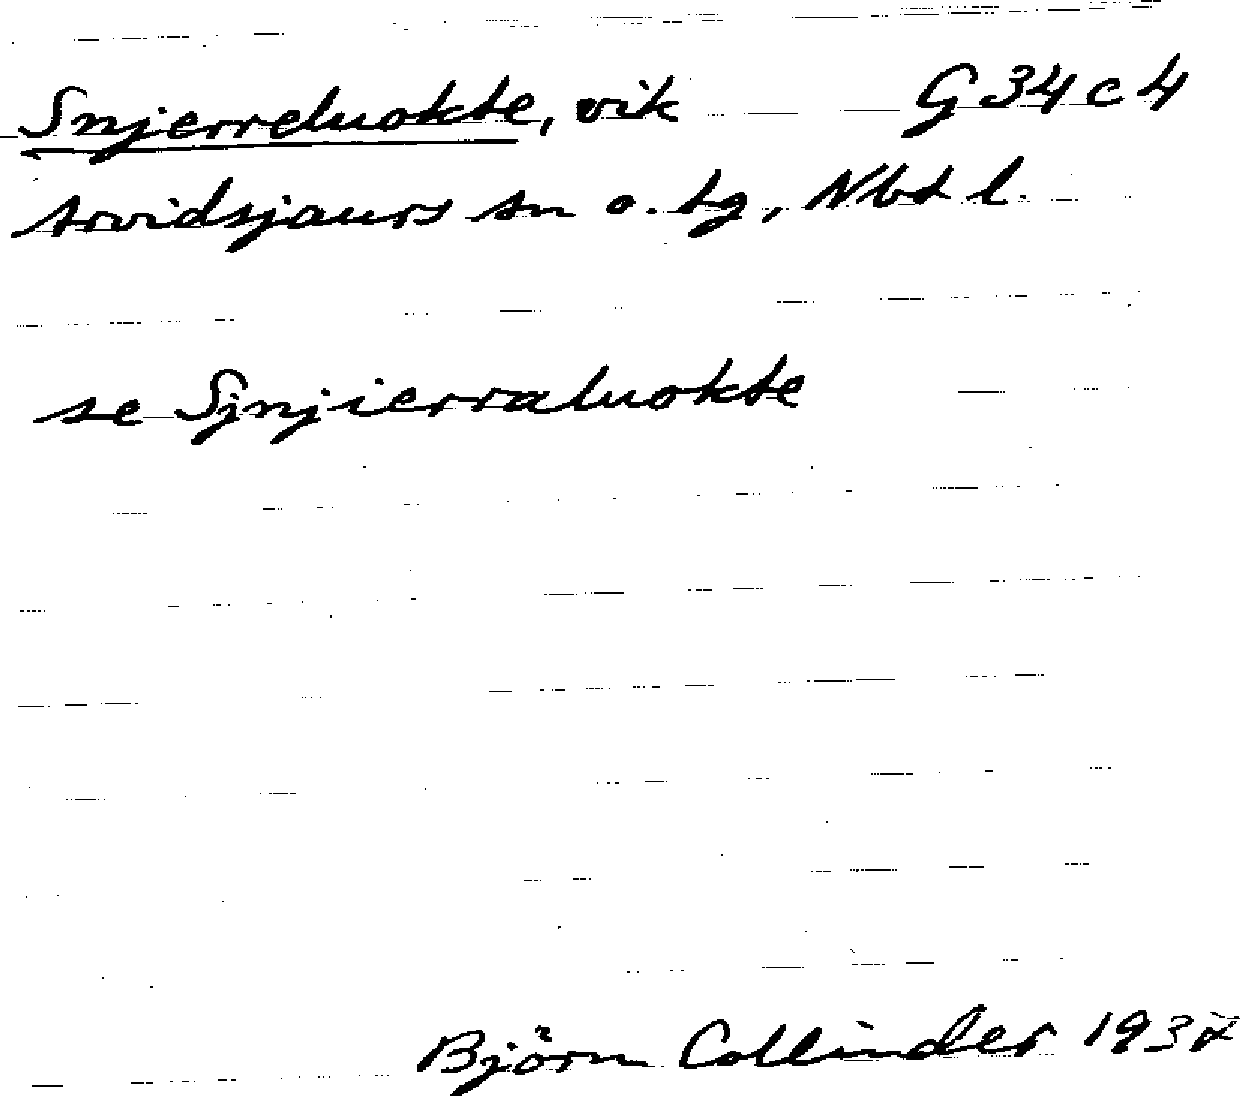 Snjerreluokte, vik G34c4
Arvidsjaurs sn o. tg, Nbt l.
se Sjnjierraluokte
Björn Collinder 1937